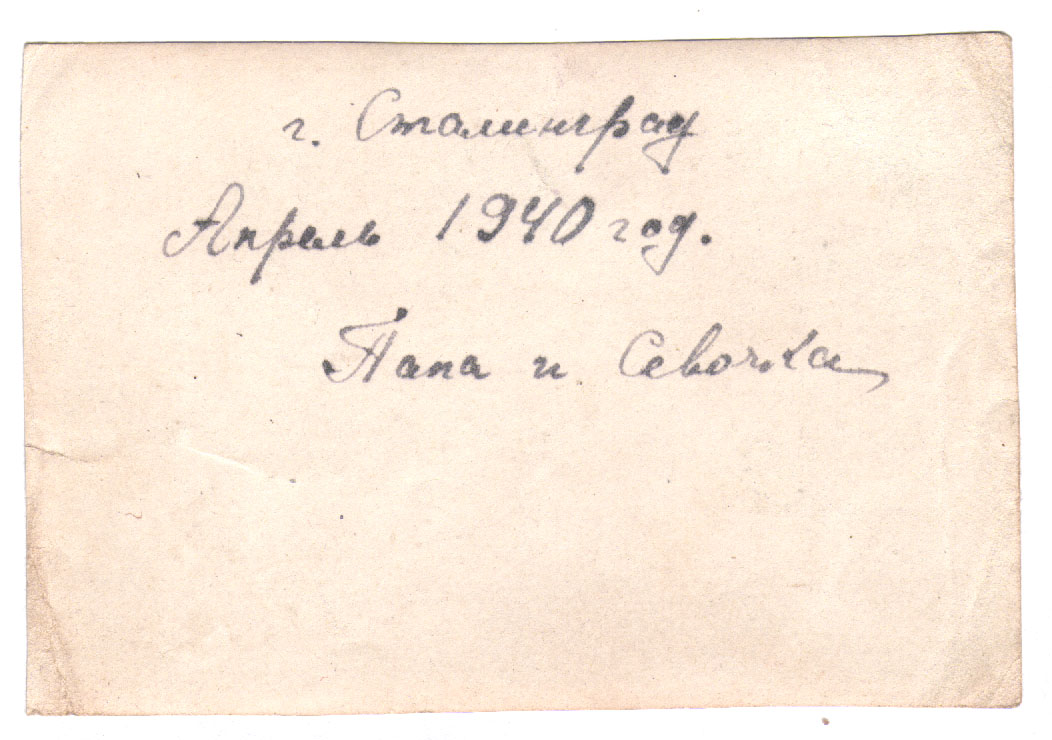 г. Сталинград
Апрель 1940 год.
Папа и Севочка